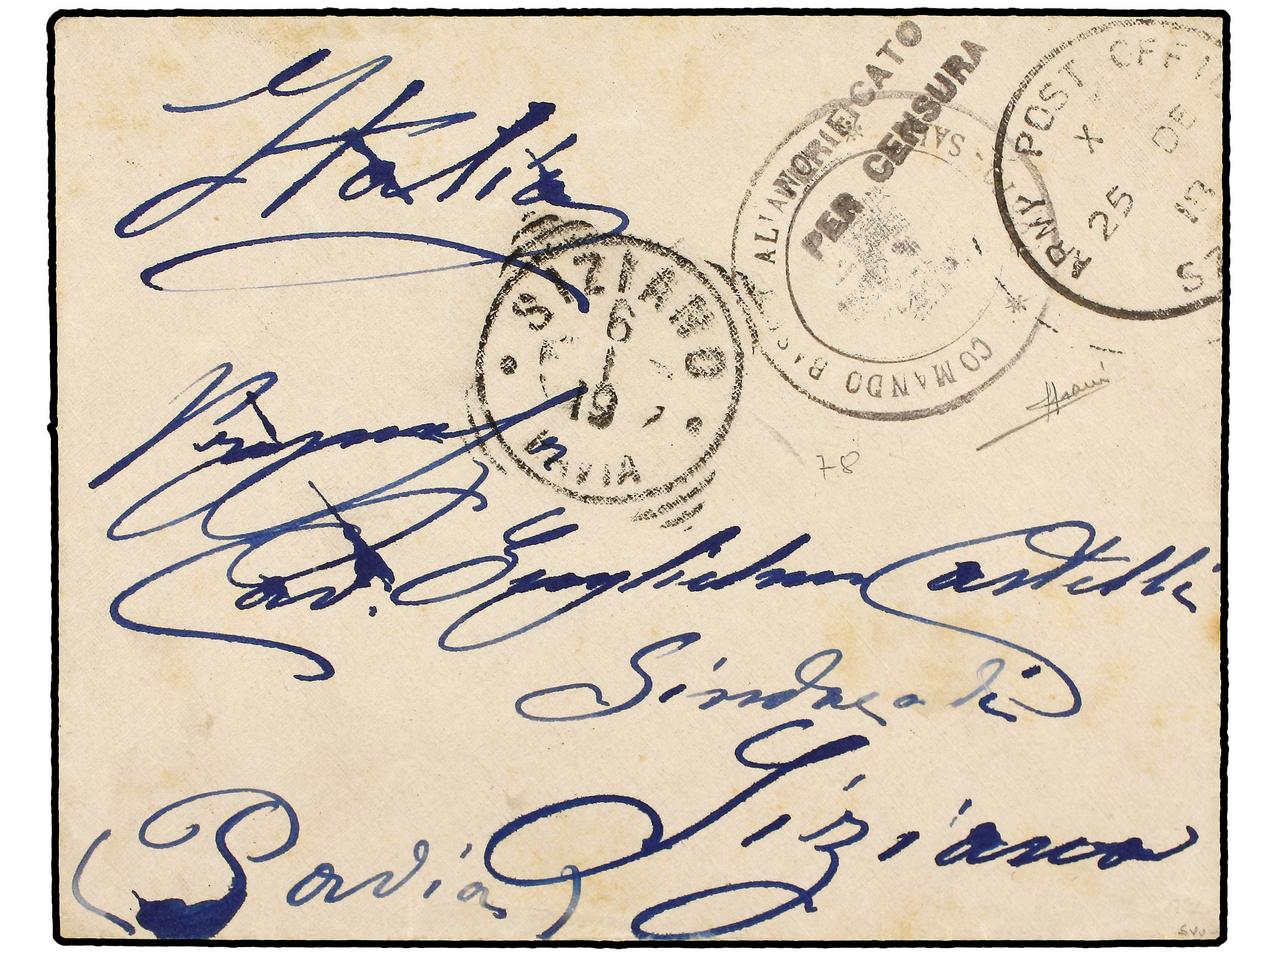 Italia
Cav. Guglielmo Castelli
Sindaco di
Siziano
Pavia
VERIFICATO
PER CENSURA
ARMY POST OFFI
X
25 DE
19
COMANDO BASE ITALIANO
SIZIANO
6
1
19
PAVIA
78